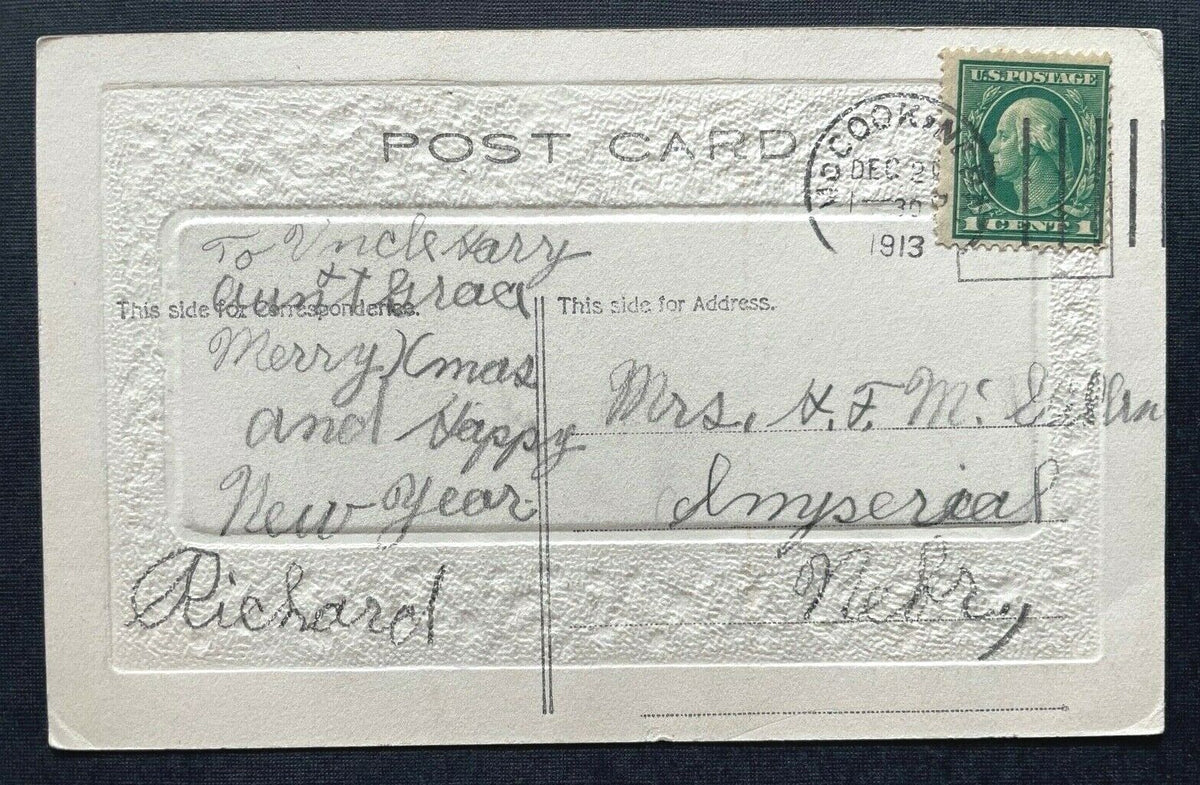 POST CARD
U.S.POSTAGE
1 CENT 1
McCOOK, NEBR.
DEC 2
1—30 P
1913
To Uncle Harry
& Aunt Grace
This side for Correspondence.
Merry Xmas
and Happy
New Year
Richard
This side for Address.
Mrs. H. F. Mc
Imperial
Nebr,